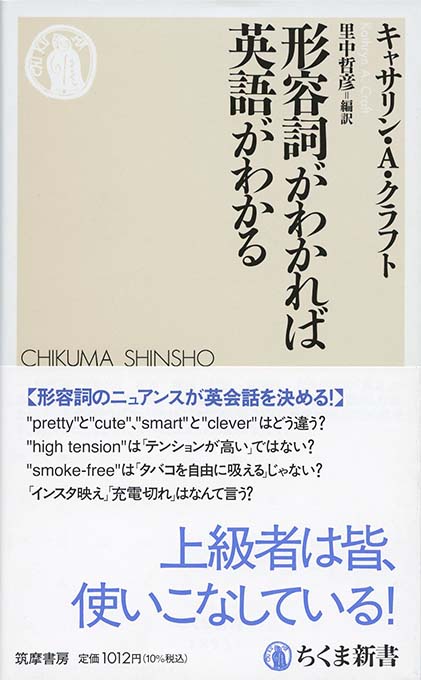 キャサリン・A・クラフト
Kathryn A. Craft
里中哲彦=編訳
形容詞がわかれば
英語がわかる
CHIKUMA SHINSHO
【形容詞のニュアンスが英会話を決める!】
"pretty"と"cute"、"smart"と"clever"はどう違う?
"high tension"は「テンションが高い」ではない?
"smoke-free"は「タバコを自由に吸える」じゃない?
「インスタ映え」「充電切れ」はなんて言う?
上級者は皆、
使いこなしている!
筑摩書房 定価1012円(10%税込)
ちくま新書